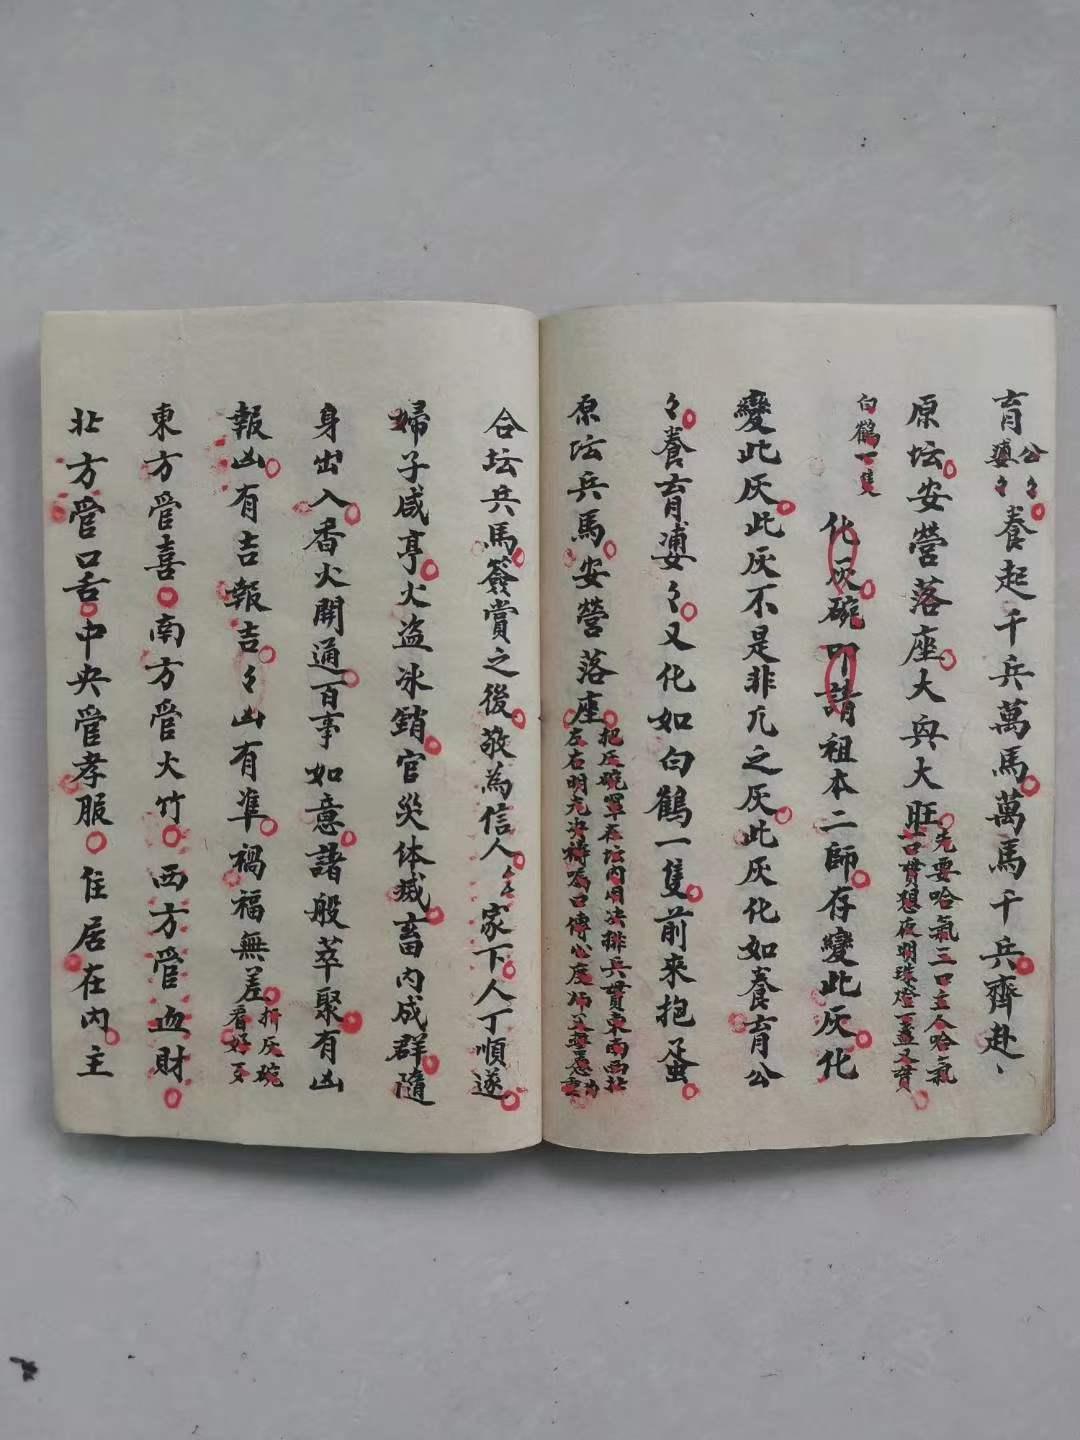 育公々婆々養起千兵萬馬萬馬千兵齊赴、
原坛安營落座大興大旺先要哈氣三口主人哈氣
一口貫想夜明珠燈一盞又貫
白鶴一隻
化灰碗叩請祖本二師存變此灰化
變此灰此灰不是非凡之灰此灰化如養育公
々養育婆々又化如白鶴一隻前來抱蛋
原坛兵馬安營落座把灰碗罩在坛内用法排兵貫東南西北
左右明
合坛兵馬簽賞之後敬為信人々家下人丁順遂
婦子咸亨火盜冰銷官災体減畜内成群隨
身出入香火開通百事如意諸般萃聚有凶
報凶有吉報吉々凶有準禍福無差折灰碗
看好歹
東方管喜南方管火竹西方管血財
北方管口舌中央管孝服住居在内主